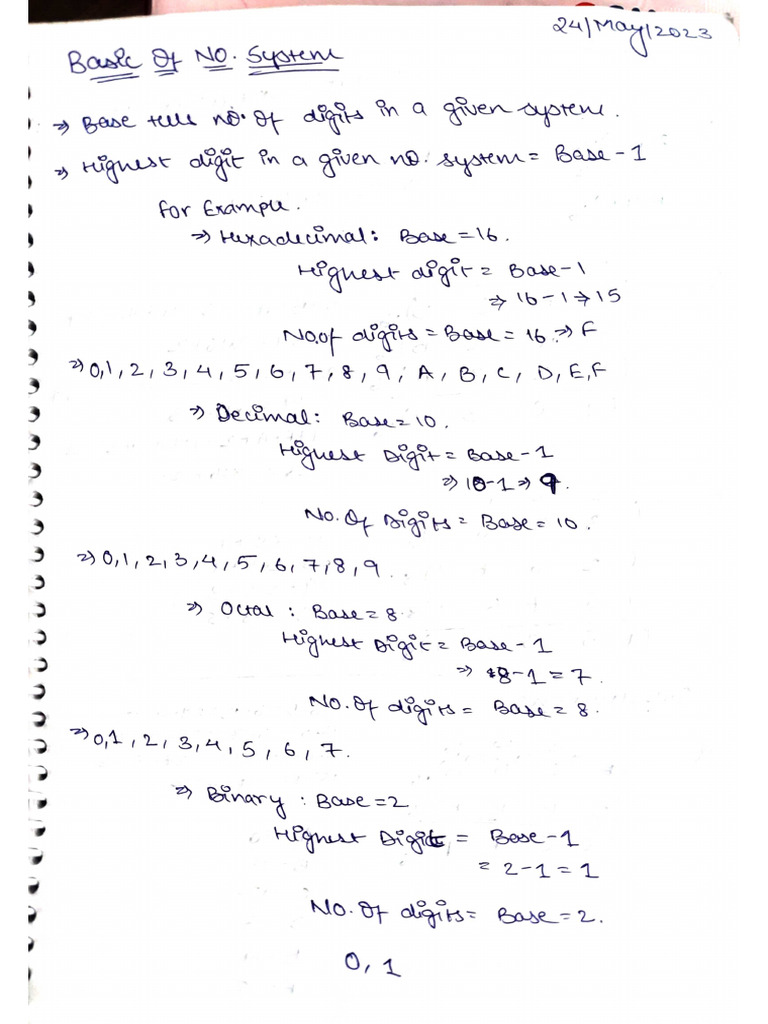 24/May/2023
Basic Of No. System
⇒ Base tells no. of digits in a given system.
⇒ Highest digit in a given no. system = Base - 1
For Example.
⇒ Hexadecimal: Base = 16.
Highest digit = Base - 1
⇒ 16 - 1 ⇒ 15
No. of digits = Base = 16 ⇒ F
⇒ 0, 1, 2, 3, 4, 5, 6, 7, 8, 9, A, B, C, D, E, F
⇒ Decimal: Base = 10.
Highest Digit = Base - 1
⇒ 10 - 1 ⇒ 9.
No. Of Digits = Base = 10.
⇒ 0, 1, 2, 3, 4, 5, 6, 7, 8, 9
⇒ Octal : Base = 8
Highest Digit = Base - 1
⇒ 8 - 1 = 7.
No. Of digits = Base = 8.
⇒ 0, 1, 2, 3, 4, 5, 6, 7.
⇒ Binary : Base = 2
Highest Digit = Base - 1
= 2 - 1 = 1
No. Of digits = Base = 2.
0, 1